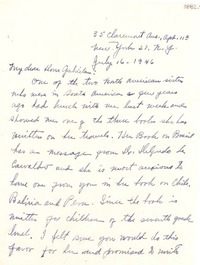 35 Claremont Ave, Apt. 113
New York 27, N.Y.
July 16-1946
My dear Dona Gabriela:
One of the two North American sisters
who were in South America a few years
ago had lunch with me last week and
showed me one of the three books she has
written on her travels. Her Book on Brazil
has a message from Dr. de
Carvalho and she is most anxious to
have one from you in her book on Chile,
Bolivia and Peru. Since the book is
written for children of the seventh grade
level. I felt sure you would do this
favor for me and promised to write